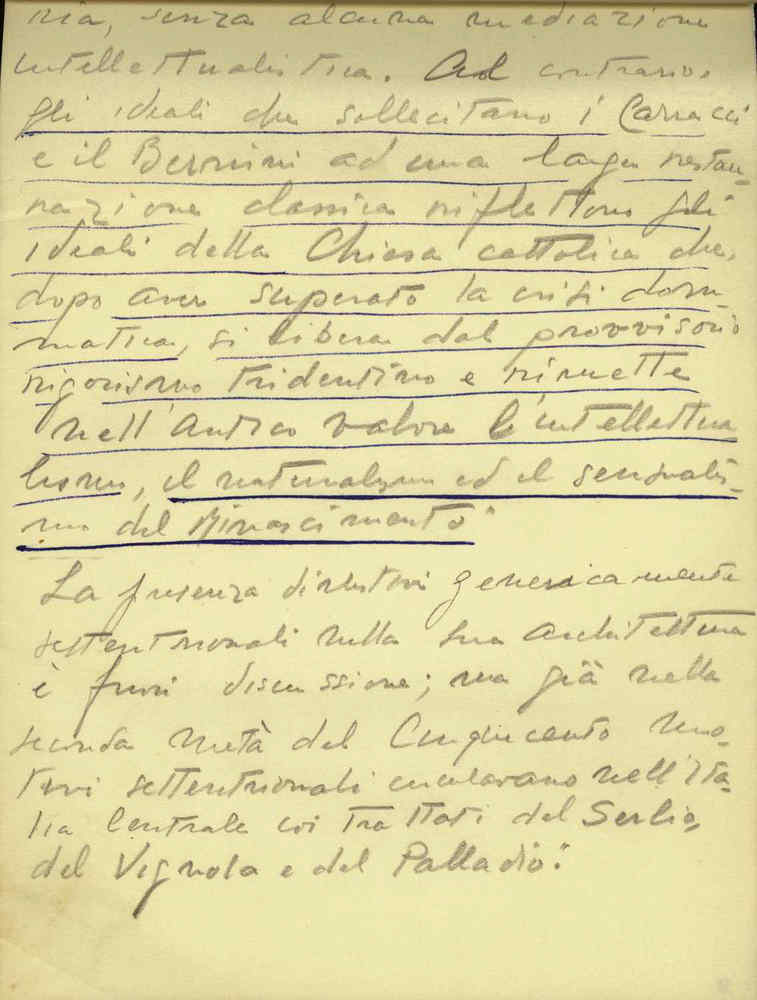 ria, senza alcuna mediazione
intellettualistica. Al contrario,
gli ideali che sollecitano i Carracci
e il Bernini ad una larga restau-
razione classica riflettono gli
ideali della Chiesa cattolica che,
dopo aver superato la crisi dram
matica, si libera dal provvisorio
rigorismo tridentino e rimette
nell'antico valore l'intellettua
lismo, il naturalismo ed il sensuali-
smo del Rinascimento"
La presenza di motivi genericamente
settentrionali nella sua architettura
è fuori discussione; ma già nella
seconda metà del Cinquecento mo-
tivi settentrionali circolavano nell'Ita-
lia Centrale coi trattati del Serlio,
del Vignola e del Palladio".